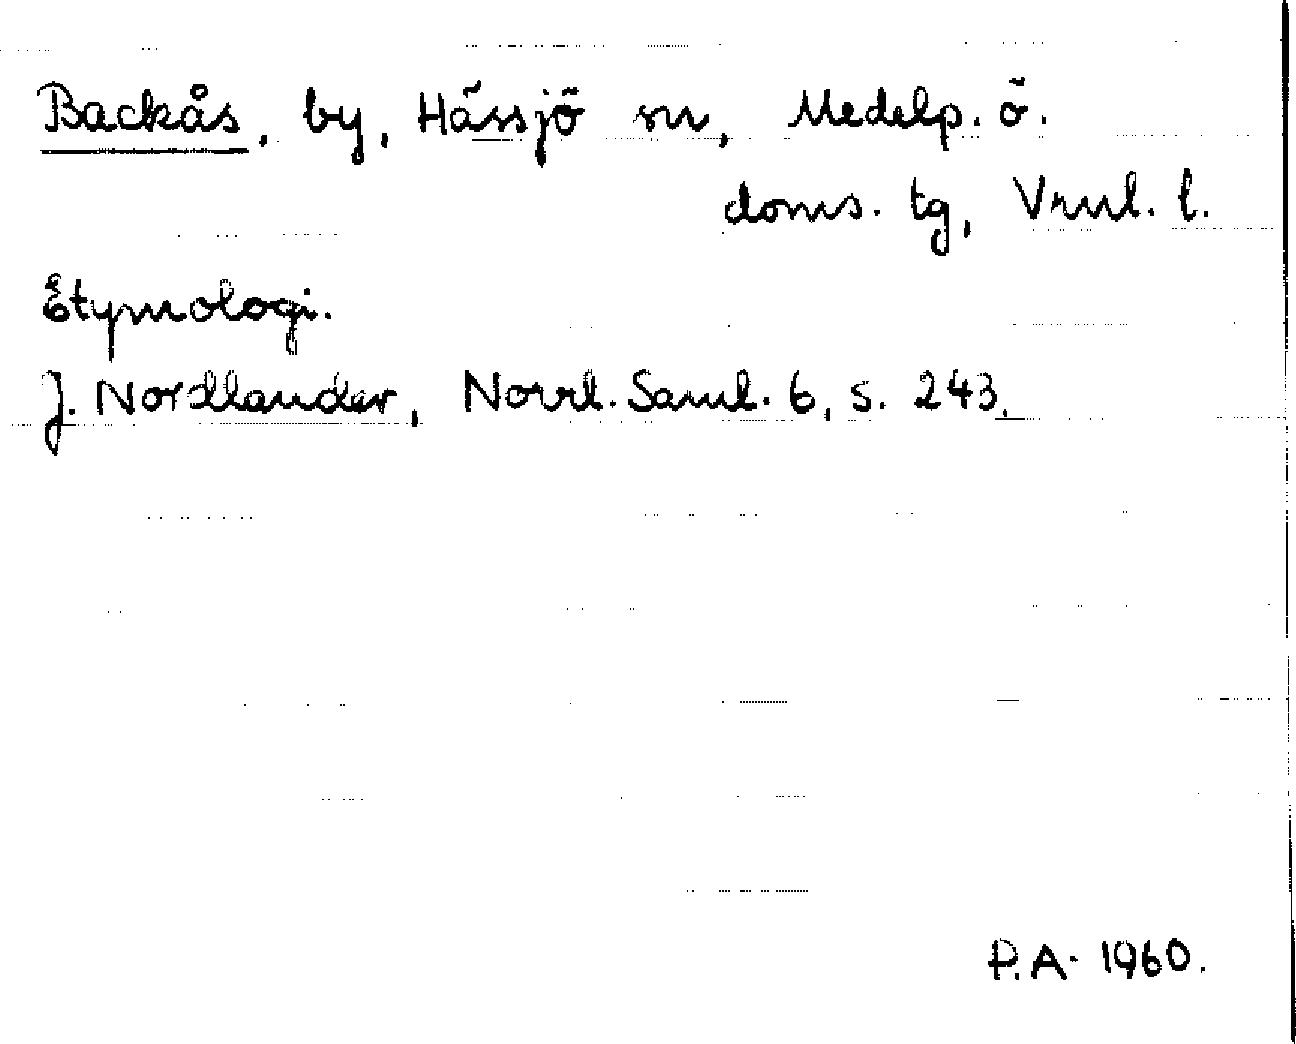 Backås, by, Hässjö sn, Medelp. ö.
doms. tg, Vrnl. l.
Etymologi.
J. Nordlander, Norrl. Saml. 6, s. 243.
P.A. 1960.